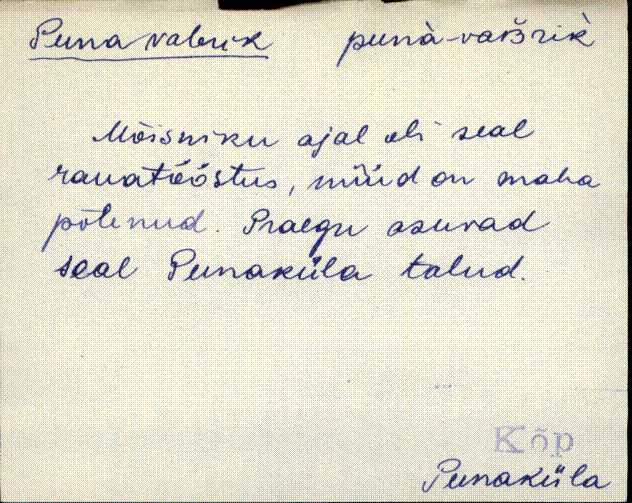 Puna vabrik punà-vaʙrik̀
Mõisniku ajal oli seal
rauatööstus, nüüd on maha
põlenud. Praegu asuvad
seal Punaküla talud.
Kõp
Punaküla